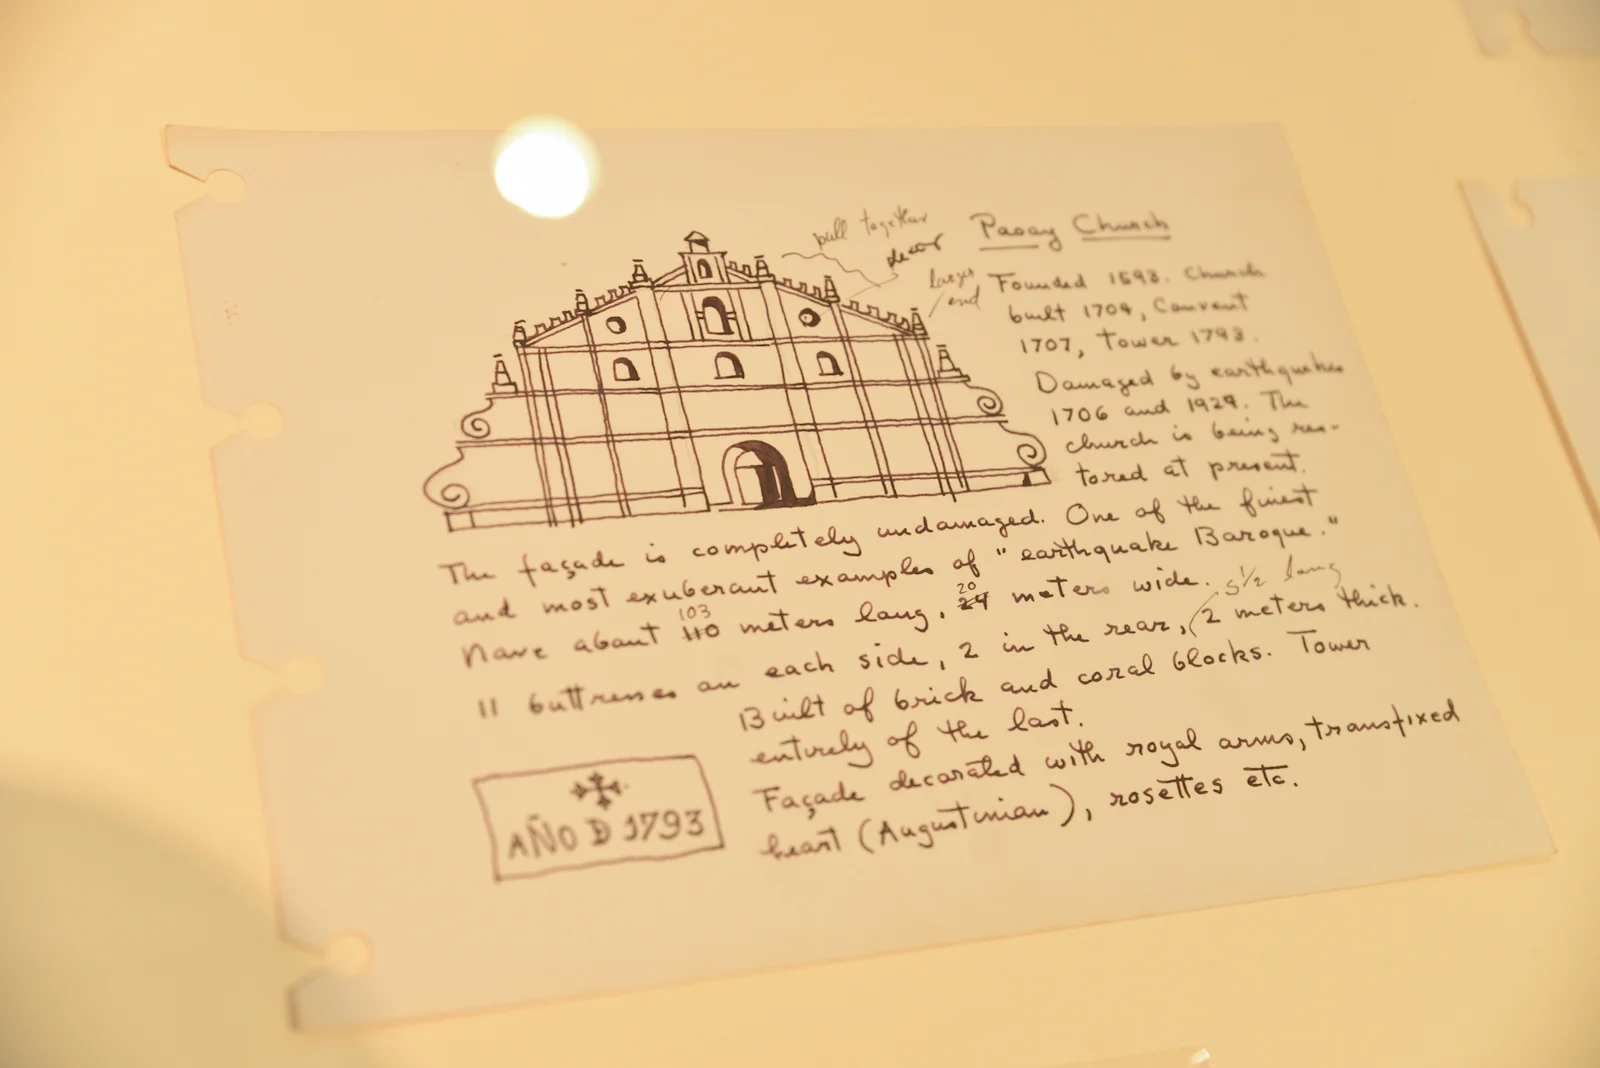 pull together
decor
larger
end
Paoay Church
Founded 1593. Church
built 1704, Convent
1707, Tower 1793.
Damaged by earthquakes
1706 and 1927. The
church is being res-
tored at present.
The façade is completely undamaged. One of the finest
and most exuberant examples of "earthquake Baroque."
Nave about 110 103 meters long, 24 20 meters wide.
5 1/2 long
11 buttresses on each side, 2 in the rear, 2 meters thick.
Built of brick and coral blocks. Tower
entirely of the last.
Façade decorated with royal arms, transfixed
heart (Augustinian), rosettes etc.
AÑO D 1793